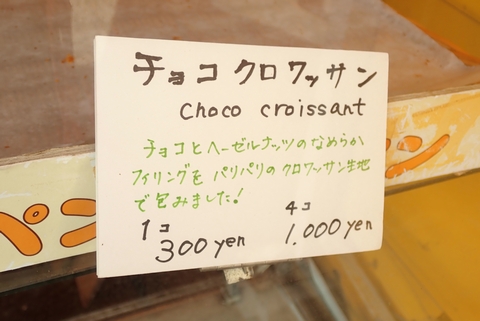 チョコクロワッサン
Choco croissant
チョコとヘーゼルナッツのなめらか
フィリングを パリパリの クロワッサン生地
で包みました!
1コ 4コ
300 yen 1,000 yen